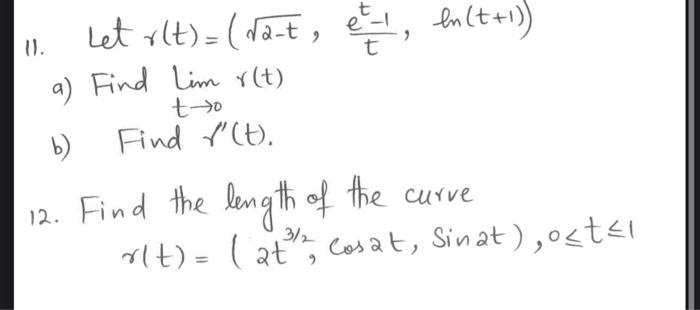 11. Let r(t) = (√2-t , e^t-1/t , ln(t+1))
a) Find Lim r(t)
t→0
b) Find r''(t).
12. Find the length of the curve
r(t) = (2t^3/2, Cos2t, Sin2t), 0≤t≤1